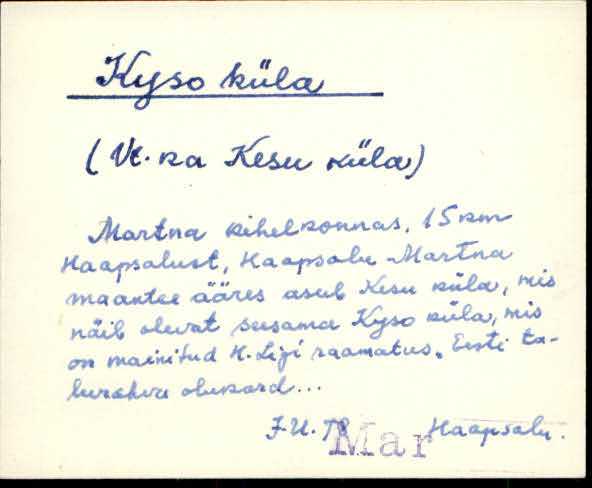 Kyso küla
(Vt. ka Kesu küla)
Martna kihelkonnas, 15 km
Haapsalust, Haapsalu-Martna
maantee ääres asub Kesu küla, mis
näib olevat seesama Kyso küla, mis
on mainitud H. Ligi raamatus „Eesti ta-
lurahva olukord...
Mar Haapsalu.